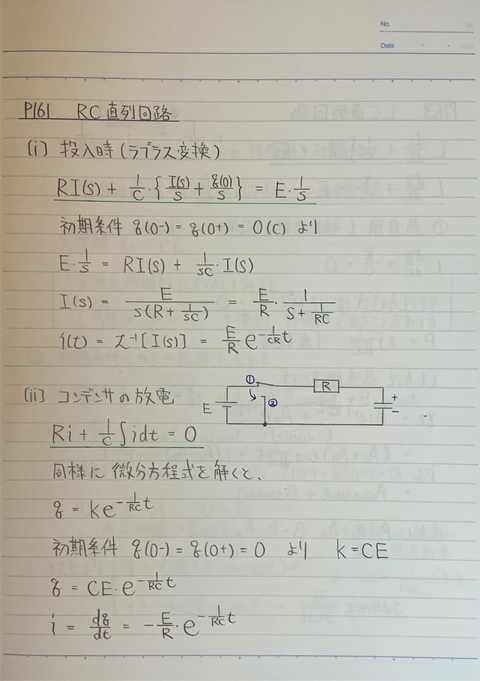 No.
Date
P161 RC直列回路
(i) 投入時(ラプラス変換)
RI(s) + 1/C・{I(s)/s + q(0)/s} = E・1/s
初期条件 q(0-) = q(0+) = 0(C) より
E・1/s = RI(s) + 1/sC・I(s)
I(s) = E/s(R + 1/sC) = E/R・1/s + 1/RC
i(t) = L⁻¹[I(s)] = E/R e^-1/CR t
(ii) コンデンサの放電
① R
E ② + -
Ri + 1/C∫idt = 0
同様に微分方程式を解くと、
q = ke^-1/RC t
初期条件 q(0-) = q(0+) = 0 より k = CE
q = CE・e^-1/RC t
i = dq/dt = -E/R・e^-1/RC t